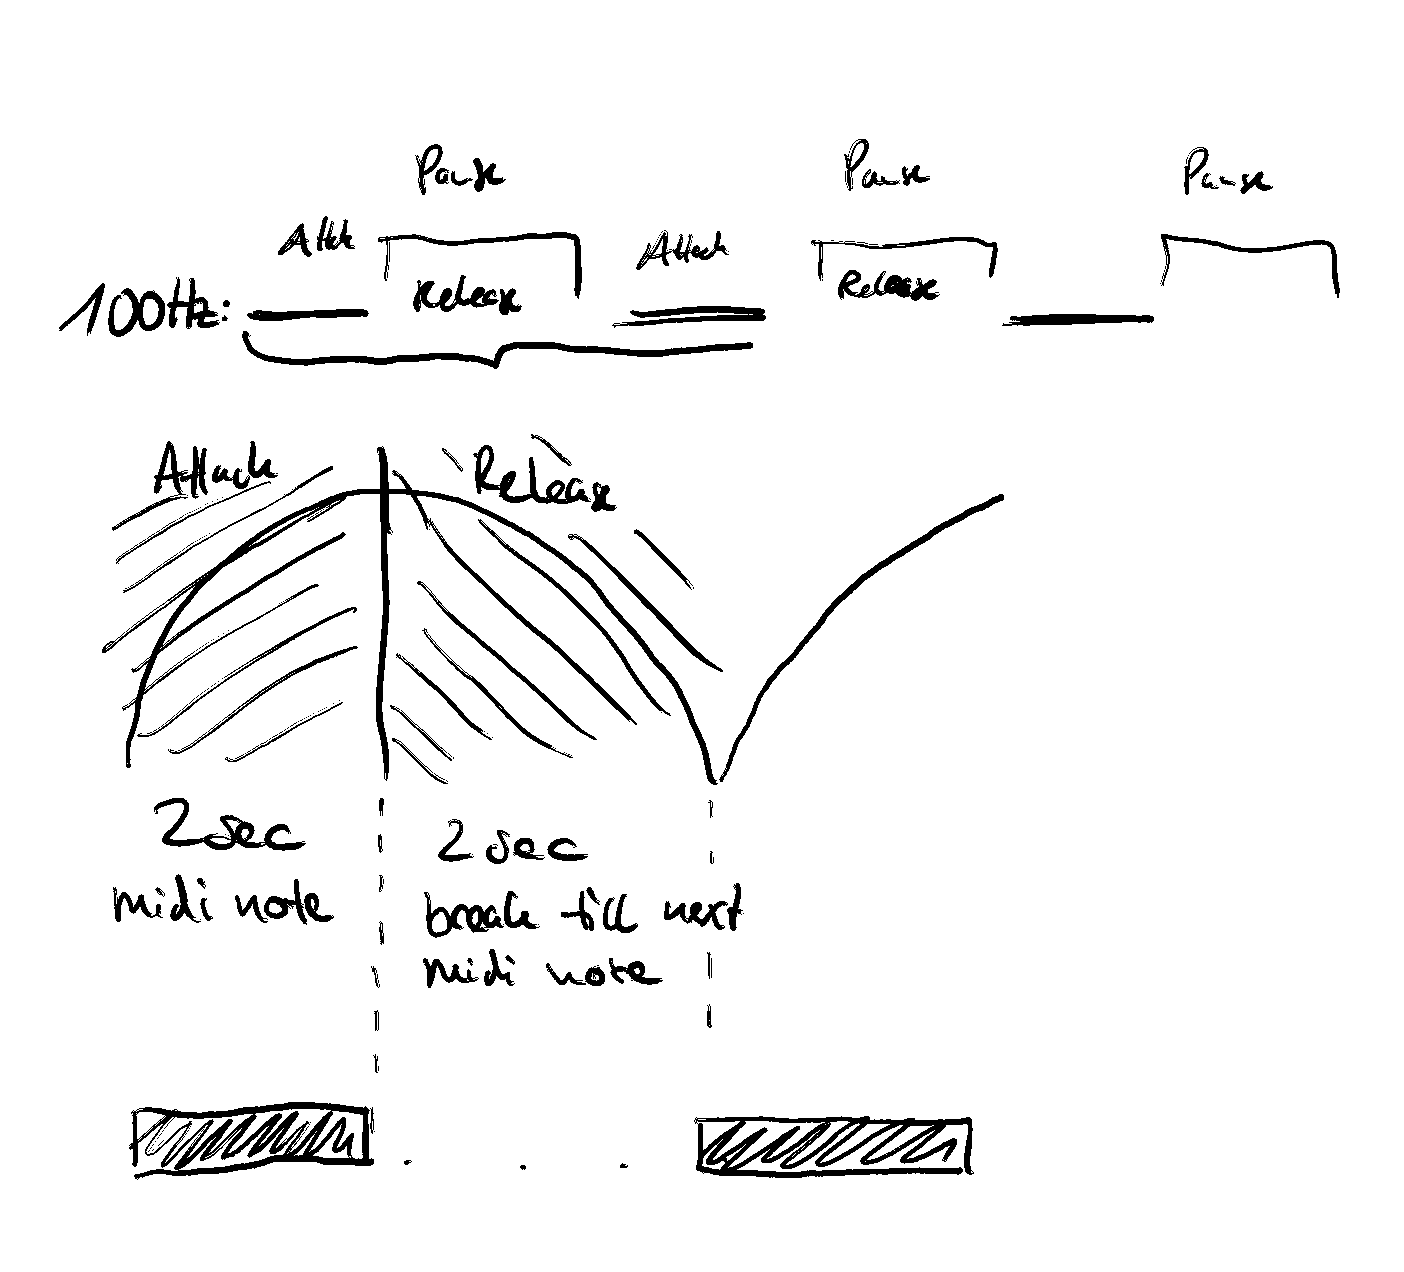 Pause Pause Pause
Attck Attack
100Hz: Release Release
Attack Release
2 sec 2 sec
midi note break till next
midi note